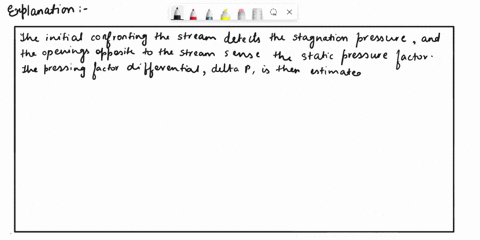 Explanation :-
The initial confronting the stream detects the stagnation pressure, and
the openings opposite to the stream sense the static pressure factor.
The pressing factor differential, delta P, is then estimate